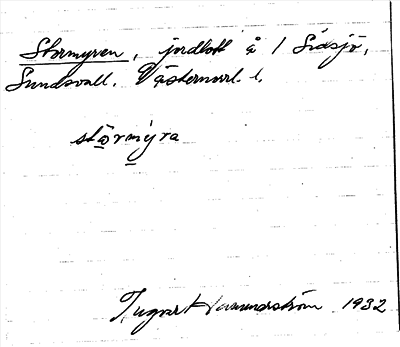 Stormyren, jordlott å 1 Sidsjö,
Sundsvall. Västernorrl. l.
stormyra
Ingvar 1932